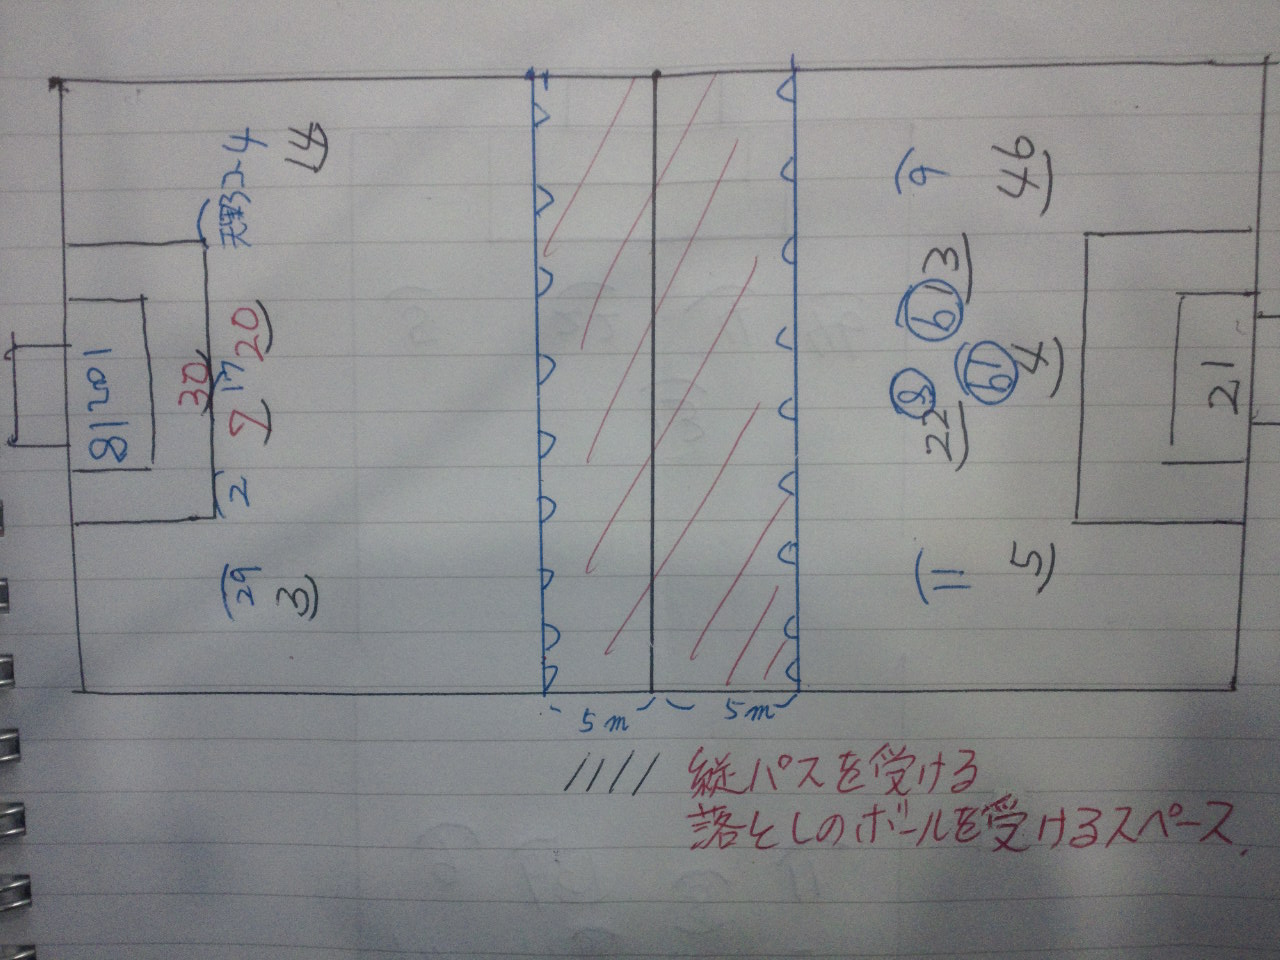 天野 2-4
14
20
30
17
7
2
29
3
81201
9
46
6
13
19
4
8
22
11
5
21
5m
5m
縦パスを受ける
落としのボールを受けるスペース.